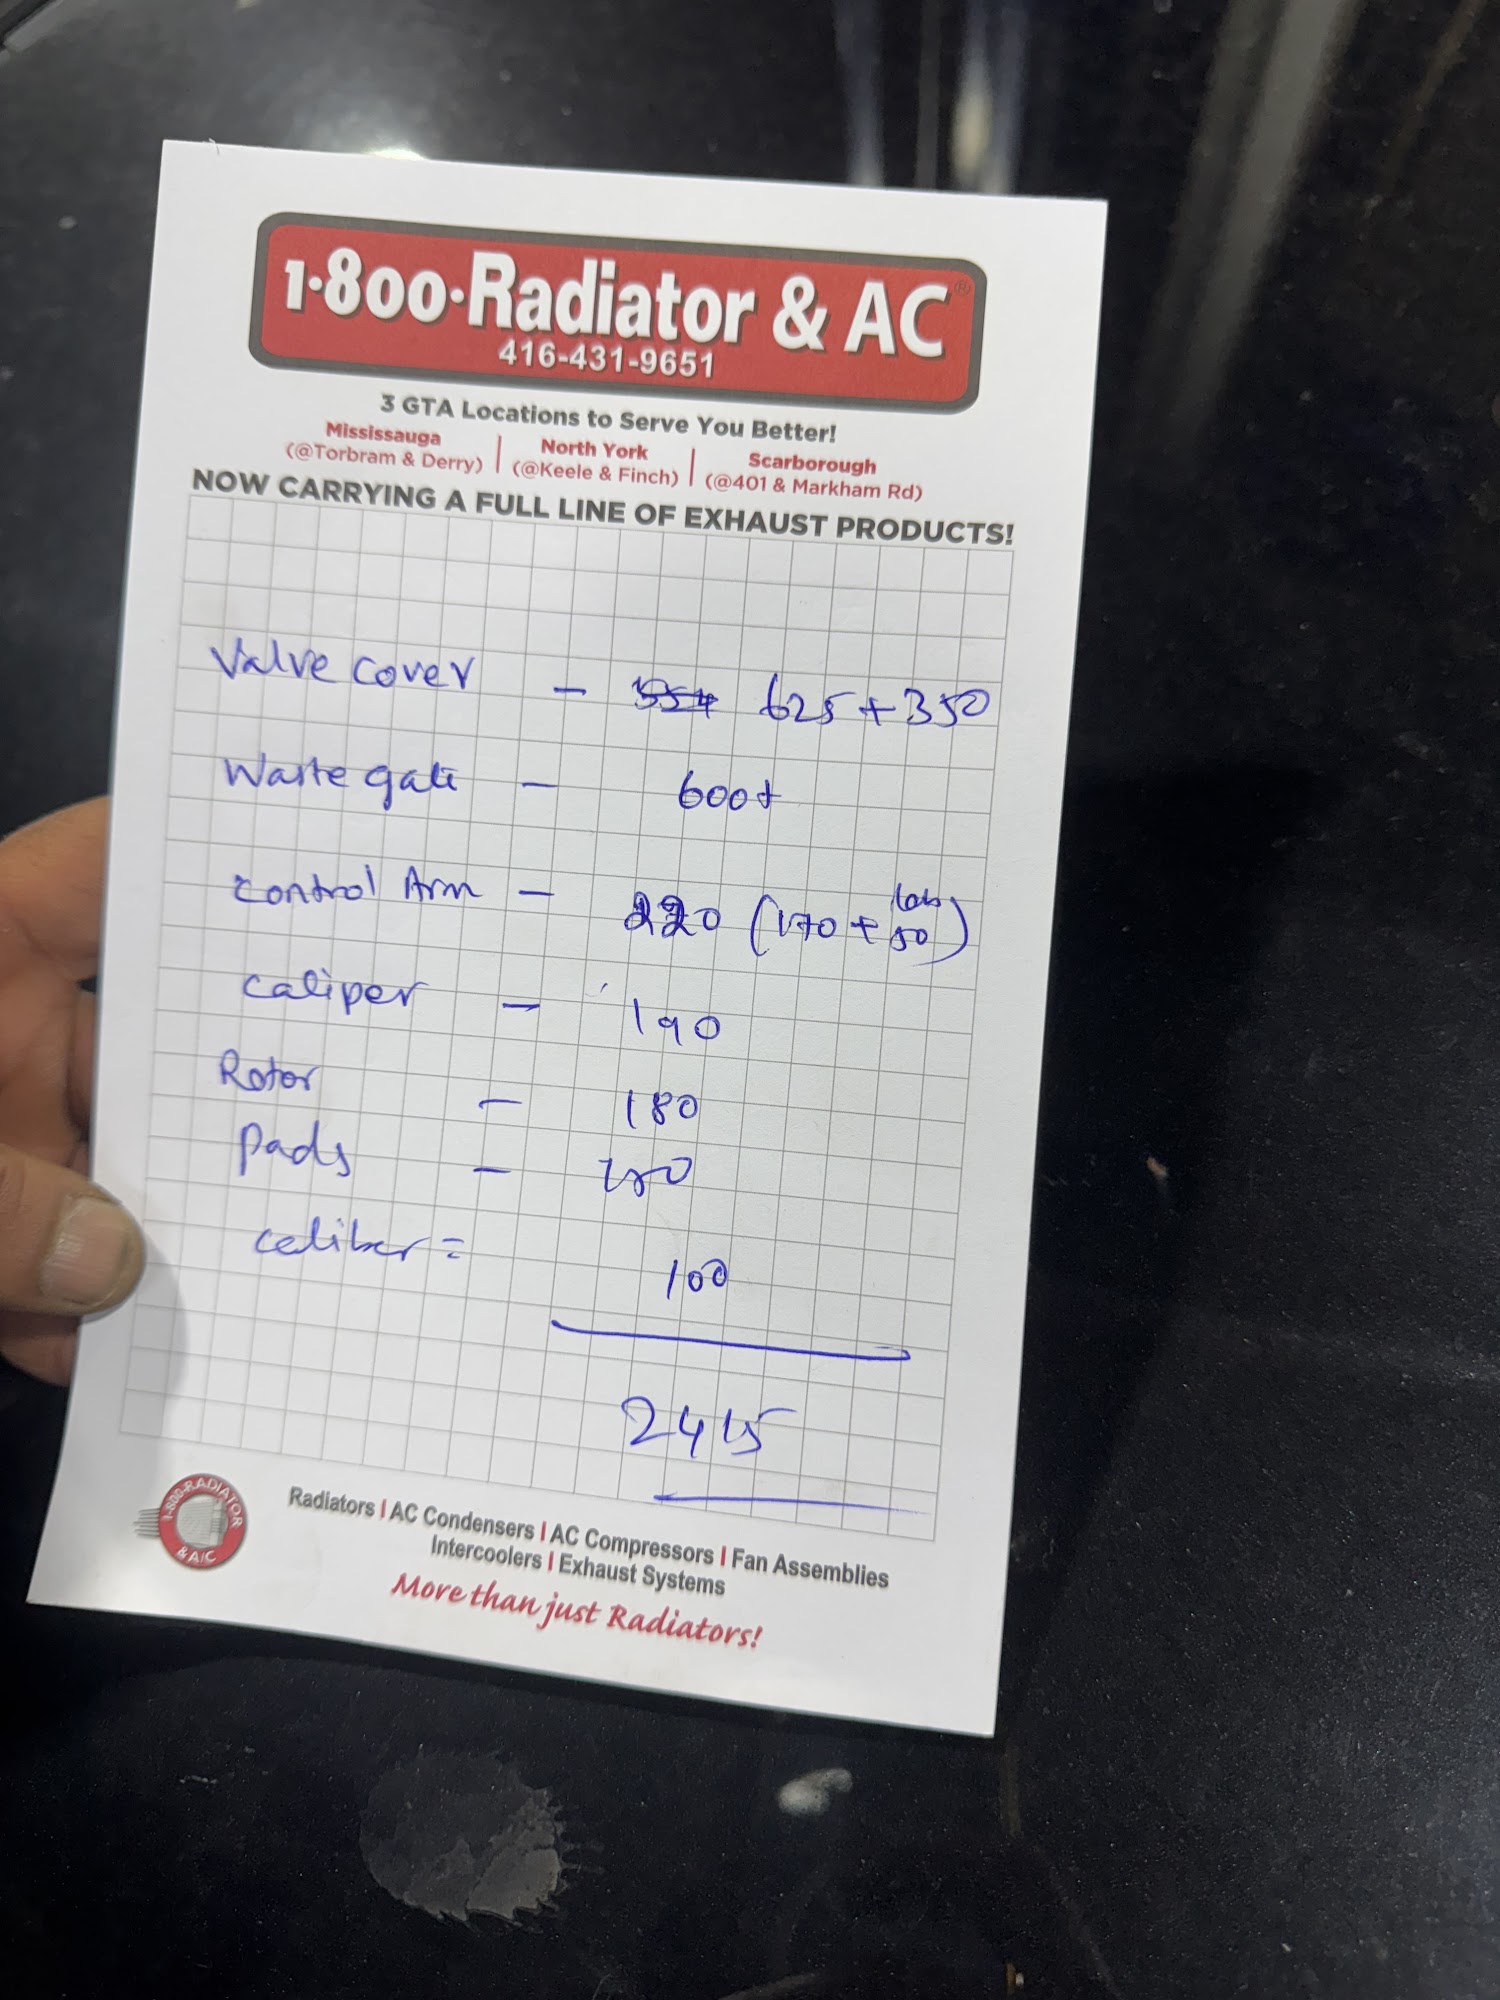 1-800-Radiator & AC®
416-431-9651
3 GTA Locations to Serve You Better!
Mississauga
(@Torbram & Derry)
North York
(@Keele & Finch)
Scarborough
(@401 & Markham Rd)
NOW CARRYING A FULL LINE OF EXHAUST PRODUCTS!
Valve cover - 625+350
Waste gate - 600+
control Arm - 220 (170 + lab 50)
caliper - 190
Rotor - 180
pads -
caliber = 100
2415
1-800-RADIATOR & A/C
Radiators | AC Condensers | AC Compressors | Fan Assemblies
Intercoolers | Exhaust Systems
More than just Radiators!